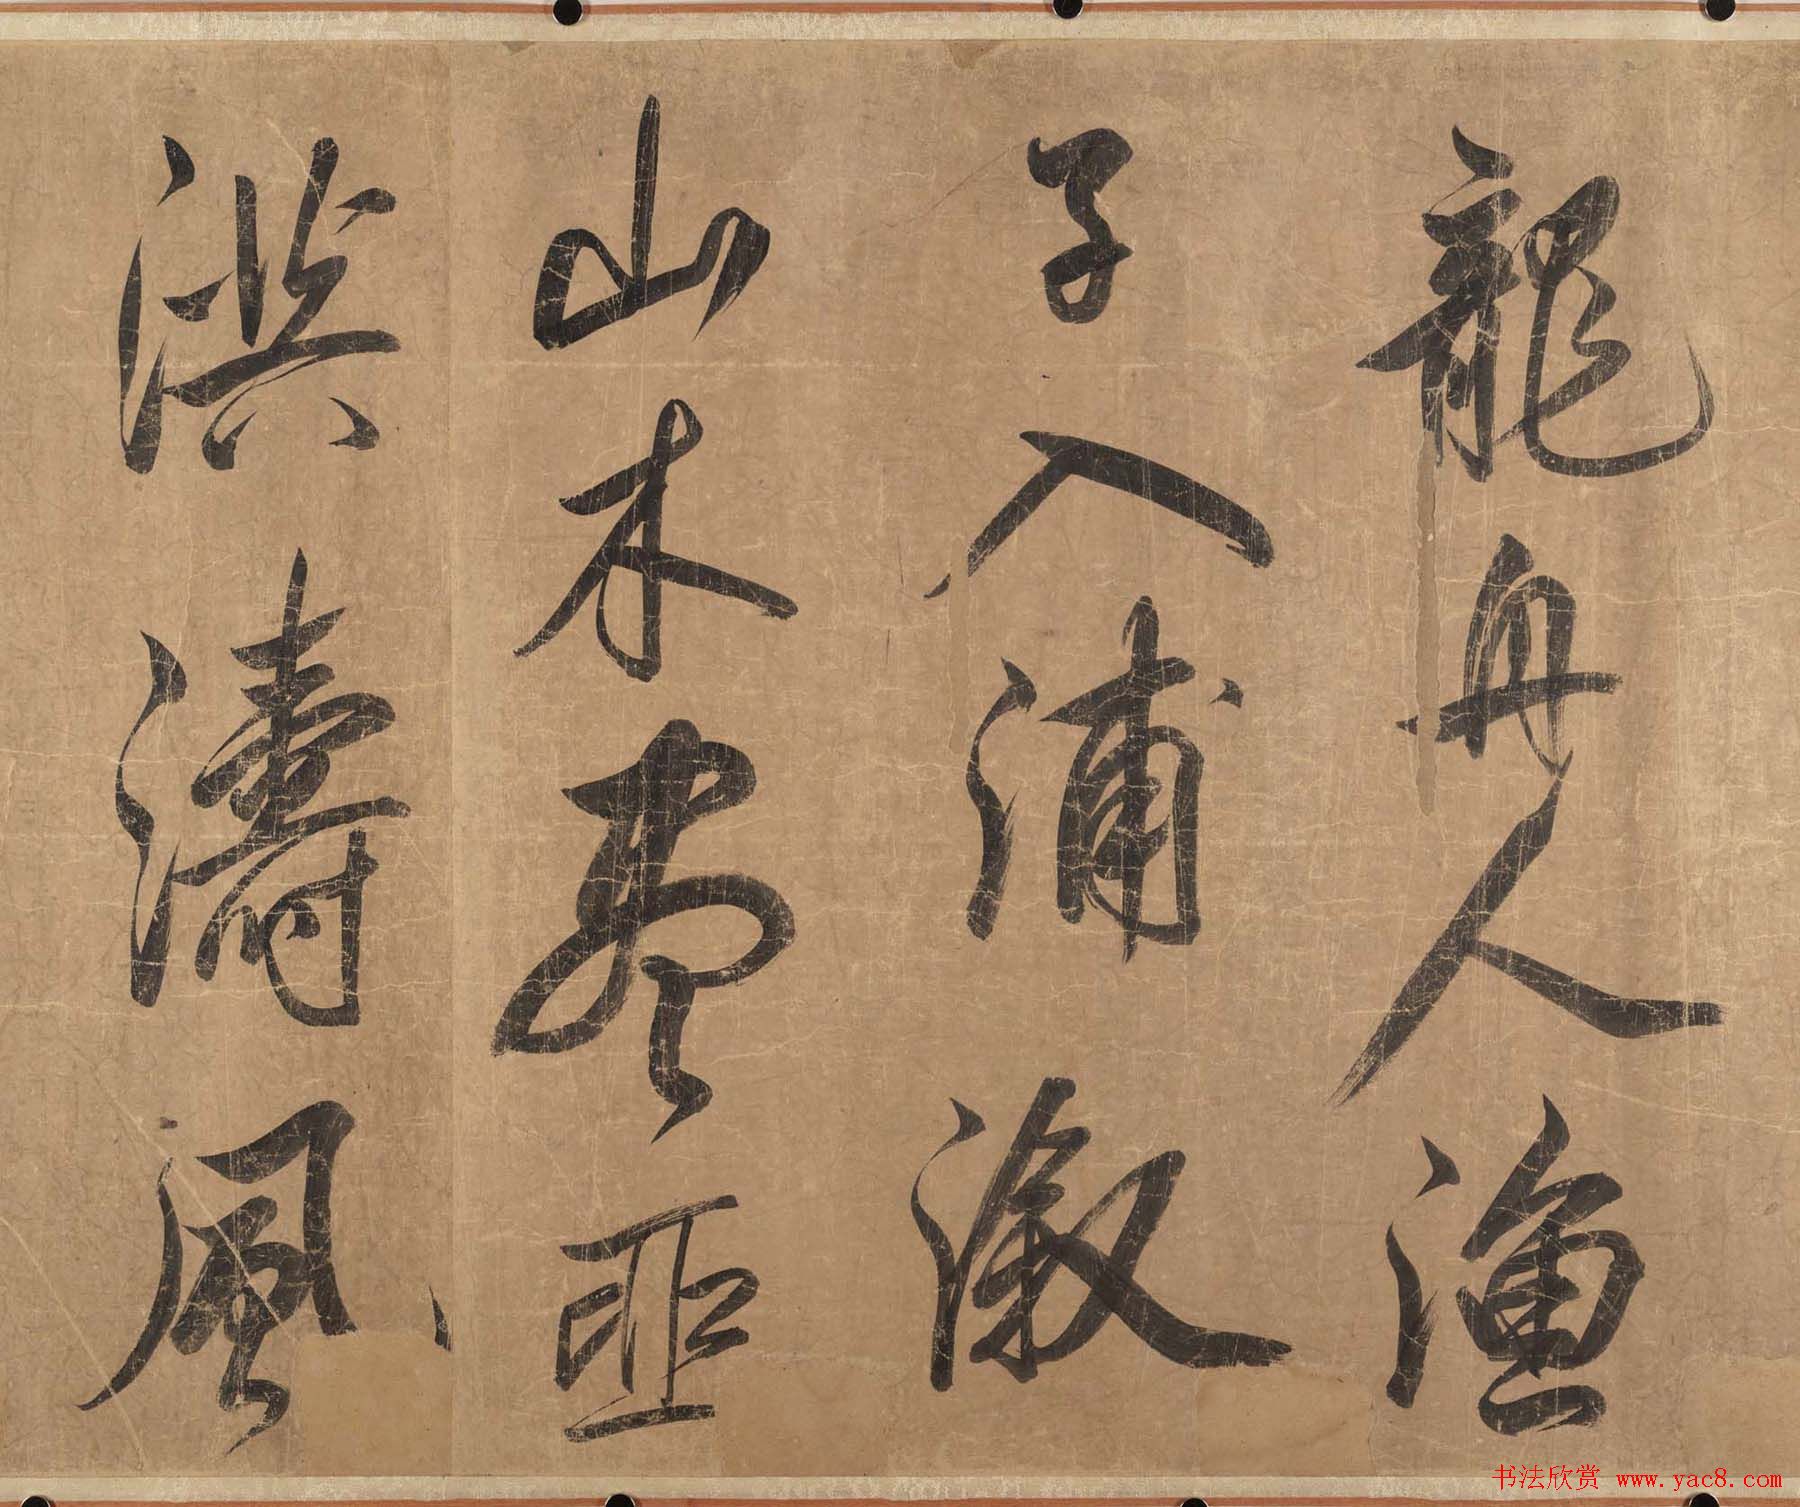 龍舟人漁
子入浦溆
山木盡亞
洪濤風
书法欣赏 www.yac8.com